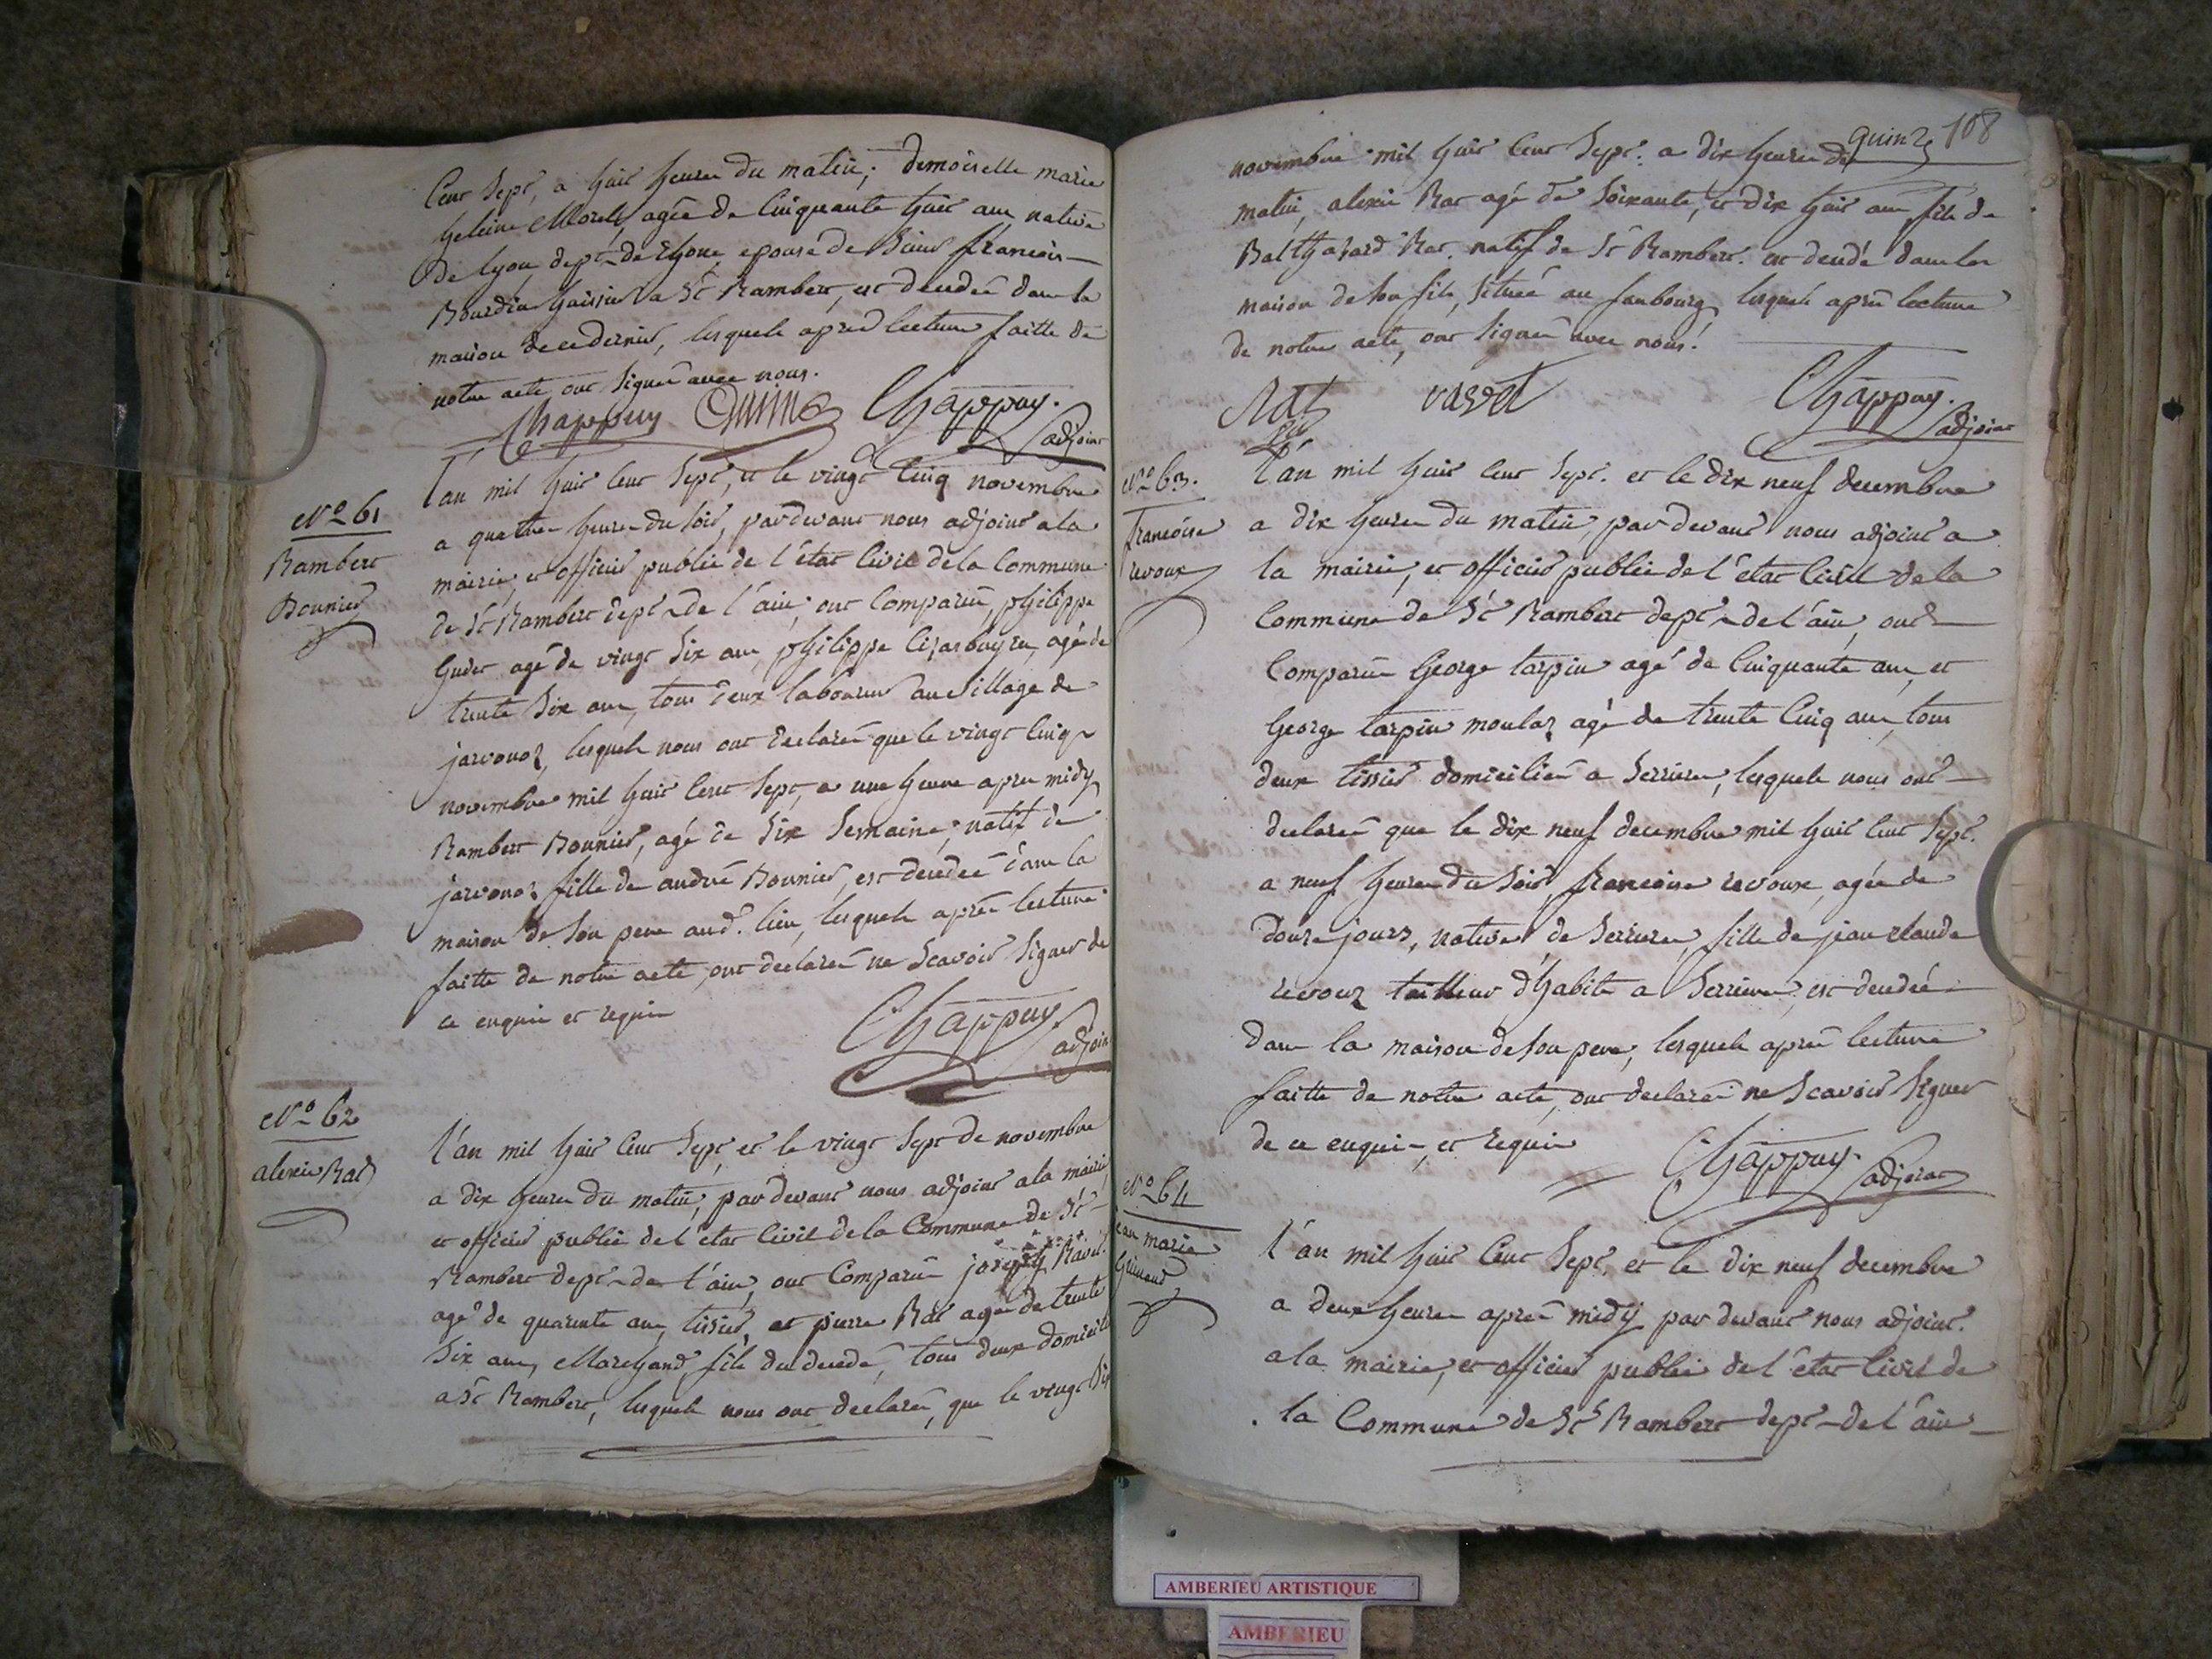 Cent Sept, a huit heures du matin; demoiselle marie
heleine Morel, agée de Cinquante huit ans, native
de lyon, dept. de Rhone, epouse de Sieur francois
Bourdin huissier a St Rambert, est decedée dans la
maison de ce dernier, lesquels après lecture faitte de
notre acte ont Signé avec nous.
Chappuy Chappuy.
adjoint
N° 61
Rambert
Bonnier
L'an mil huit Cent Sept, et le vingt Cinq novembre
a quatre heures du soir, par devant nous adjoint a la
mairie, et officier public de l'état Civil de la Commune
de St Rambert dept. de l'ain, ont Comparu, philippe
agé de vingt Six ans, philippe agé de
trente Six ans, tous deux laboureurs au village de
javornoz, lesquels nous ont declaré que le vingt Cinq
novembre mil huit Cent Sept, a une heure apres midy
Rambert Bonnier, agé de Six Semaine, natif de
javornoz fille de andré Bonnier, est decedée dans la
maison de Son pere aud. lieu, lesquels après lecture
faitte de notre acte, ont declaré ne Scavoir Signer de
ce enquis et requis
Chappuy
adjoint
N° 62
alexis Rat
L'an mil huit Cent Sept, et le vingt Sept de novembre
a dix heures du matin, par devant nous adjoint a la mairie
et officier public de l'état Civil de la Commune de St
Rambert dept. de l'ain, ont Comparu joseph
agé de quarante ans, tissier, et pierre Rat agé de trente
Six ans, Marchand, fils du decedé, tous deux domiciliés
a St Rambert, lesquels nous ont declaré, que le vingt Six
quinze 108
novembre mil huit Cent Sept. a dix heures du
matin, alexis Rat agé de Soixante, et dix huit ans fils de
Balthazard Rat. natif de St Rambert. est decedé dans la
maison de Son fils, Situeé au faubourg, lesquels après lecture
de notre acte, ont Signé avec nous.
Rat vavet Chappuy.
fils adjoint
N° 63.
francoise
revoux
L'an mil huit Cent Sept. et le dix neuf decembre
a dix heures du matin, par devant nous adjoint a
la mairie, et officier public de l'état Civil de la
Commune de St Rambert dept. de l'ain, ont
Comparu George tarpin agé de Cinquante ans, et
George tarpin moulaz agé de trente Cinq ans, tous
deux tissier domicilié a Serrieres, lesquels nous ont
declaré que le dix neuf decembre mil huit Cent Sept.
a neuf heures du Soir, francoise revoux, agée de
douze jours, native de Serrieres, fille de jean claude
revoux tailleur d'habits a Serrieres, est decedée
dans la maison de Son pere, lesquels après lecture
faitte de notre acte, ont declaré ne Scavoir Signer
de ce enquis, et requis
Chappuy.
adjoint
N° 64
jean marie
L'an mil huit Cent Sept, et le dix neuf decembre
a deux heures après midy par devant nous adjoint.
a la mairie, et officier public de l'état Civil de
la Commune de St Rambert dept. de l'ain
AMBERIEU ARTISTIQUE
AMBERIEU